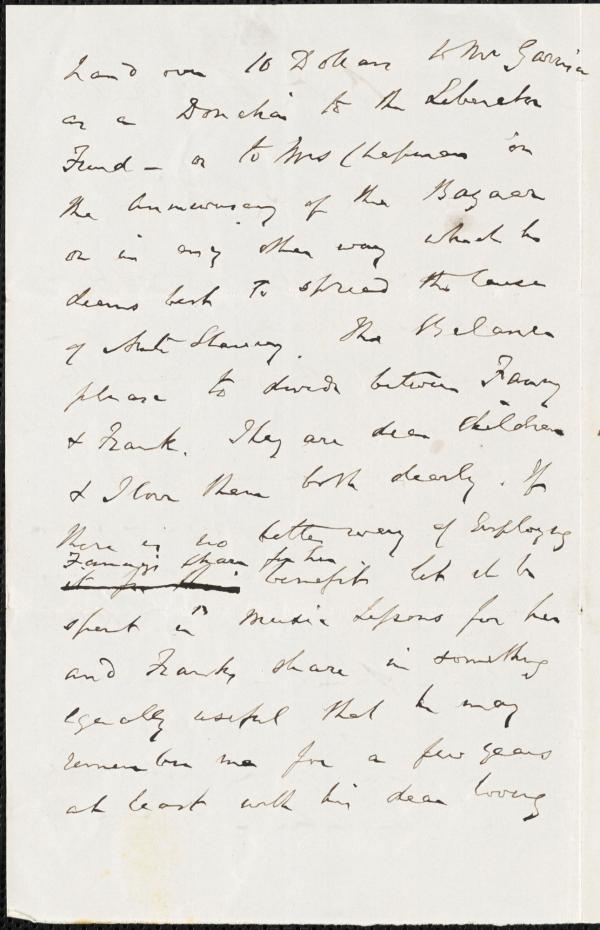 hand over 10 Dollars to Mr Garrison
as a Donation to the Liberator
Fund - or to Mrs Chapman on
the Anniversary of the Bazaar
or in any other way which he
deems best to spread the Cause
of Anti Slavery. The Balance
please to divide between Fanny
& Frank. They are dear Children
& I love them both dearly. If
there is no better way of Employing
Fanny's share for her
it for their benefit let it be
spent in Music Lessons for her
and Franks share in something
equally useful that he may
remember me for a few years
at least with his dear loving